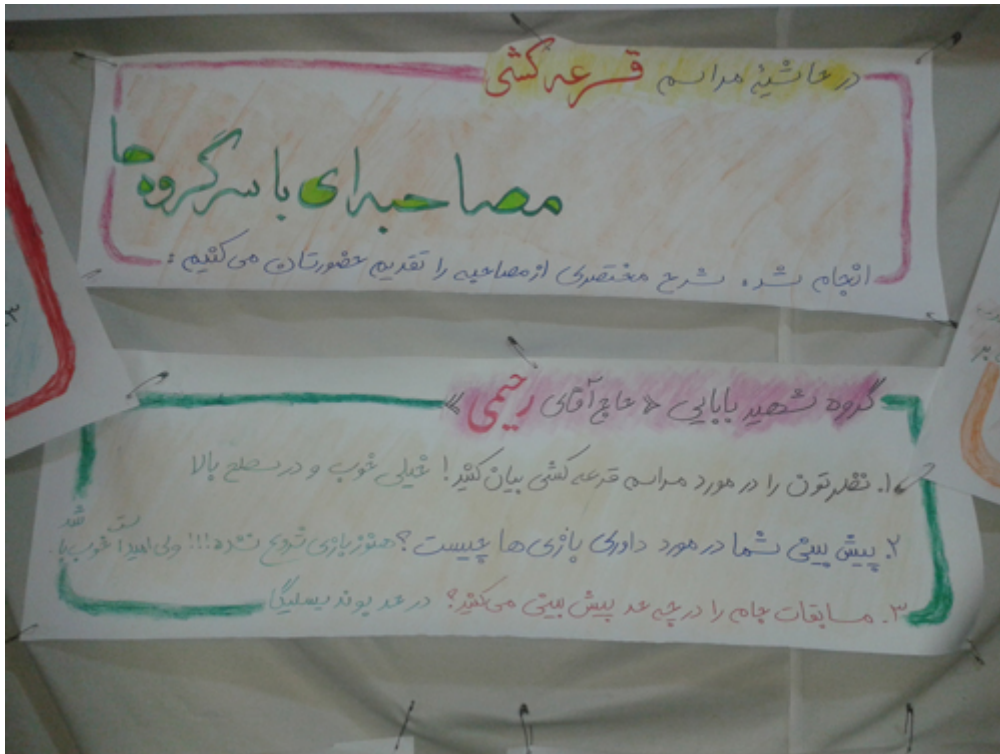 در حاشیهٔ مراسم قرعه کشی
مصاحبه ای با سرگروه ها
انجام شد. شرح مختصری از مصاحبه را تقدیم حضورتان می کنیم :
گروه شهید بابایی « حاج آقای رحیمی »
۱. نظرتون را در مورد مراسم قرعه کشی بیان کنید! خیلی خوب و در سطح بالا
۲. پیش بینی شما در مورد داوری بازی ها چیست؟ هنوز بازی شروع نشده!!! ولی امید است خوب باشد.
۳. مسابقات جام را در چه حد پیش بینی می کنید؟ در حد بوندیسلیگا